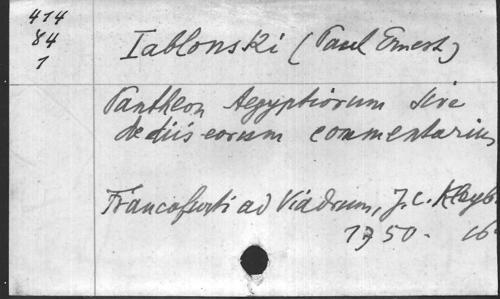 414
84
1
Iablonski (Paul Ernest)
Pantheon Aegyptiorum sive
de diis eorum commentarius
Francofurti ad Viadrum, J. C. Kleyb
1750. 16